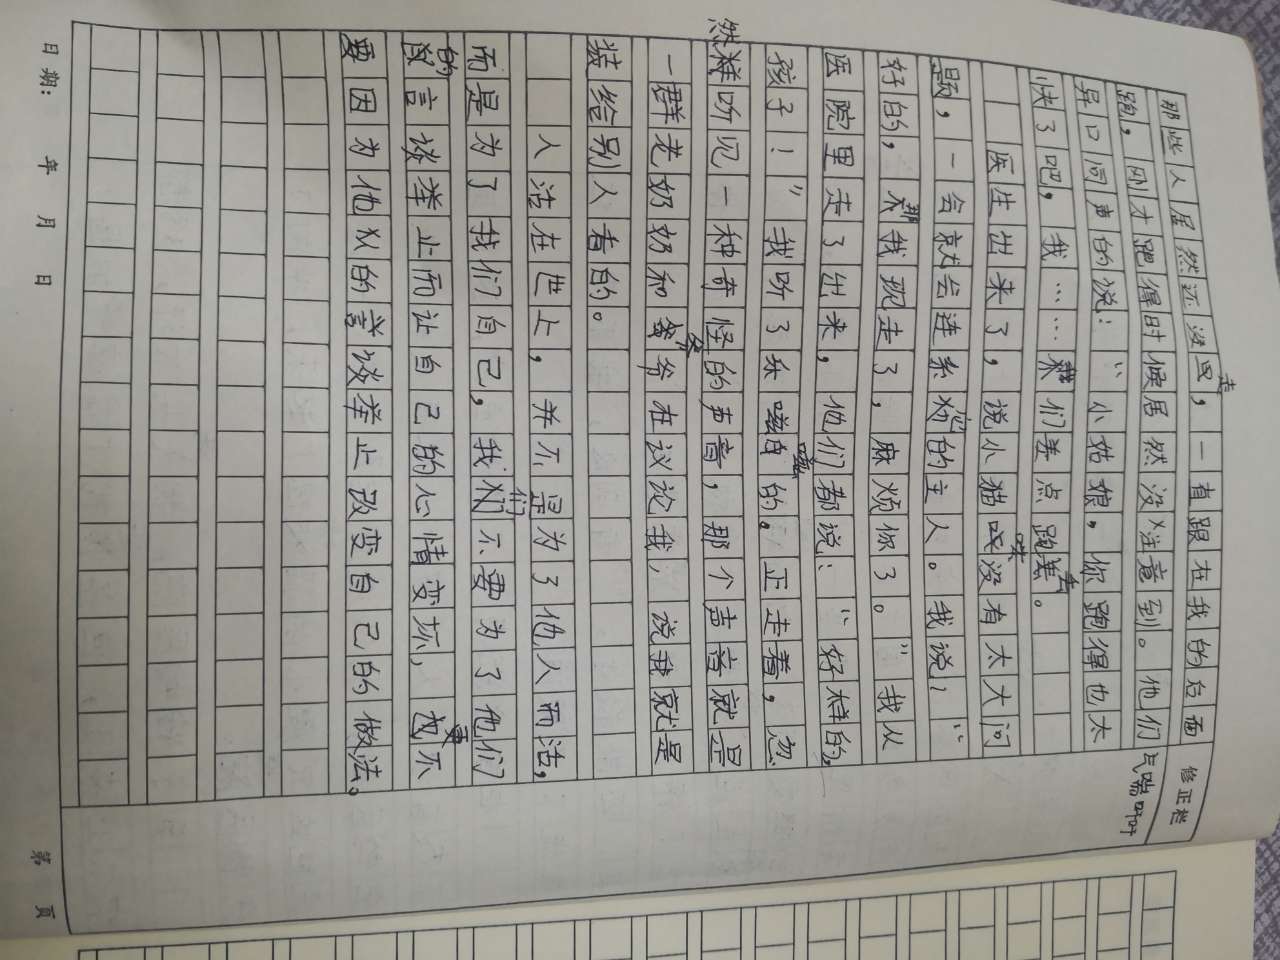 那些人居然还没走，一直跟在我的后面
跑，刚才跑得时候居然没注意到。他们
异口同声的说：“小姑娘，你跑得也太
快了吧，我……我们差点跑丢。
气喘吁吁
医生出来了，说小猫咪没有太大问
题，一会就会连系它的主人。我说：“
好的，那我现走了，麻烦你了。”我从
医院里走了出来，他们都说：“好样的，
孩子！”我听了乐嗞嗞的。正走着，忽
然听见一种奇怪的声音，那个声音就是
一群老奶奶和爷爷在议论我，说我就是
装给别人看的。
人活在世上，并不是为了他人而活，
而是为了我们自己，我们不要为了他们
的言谈举止而让自己的心情变坏，更不
要因为他人的言谈举止改变自己的做法。
修正栏
日期： 年 月 日
第 页